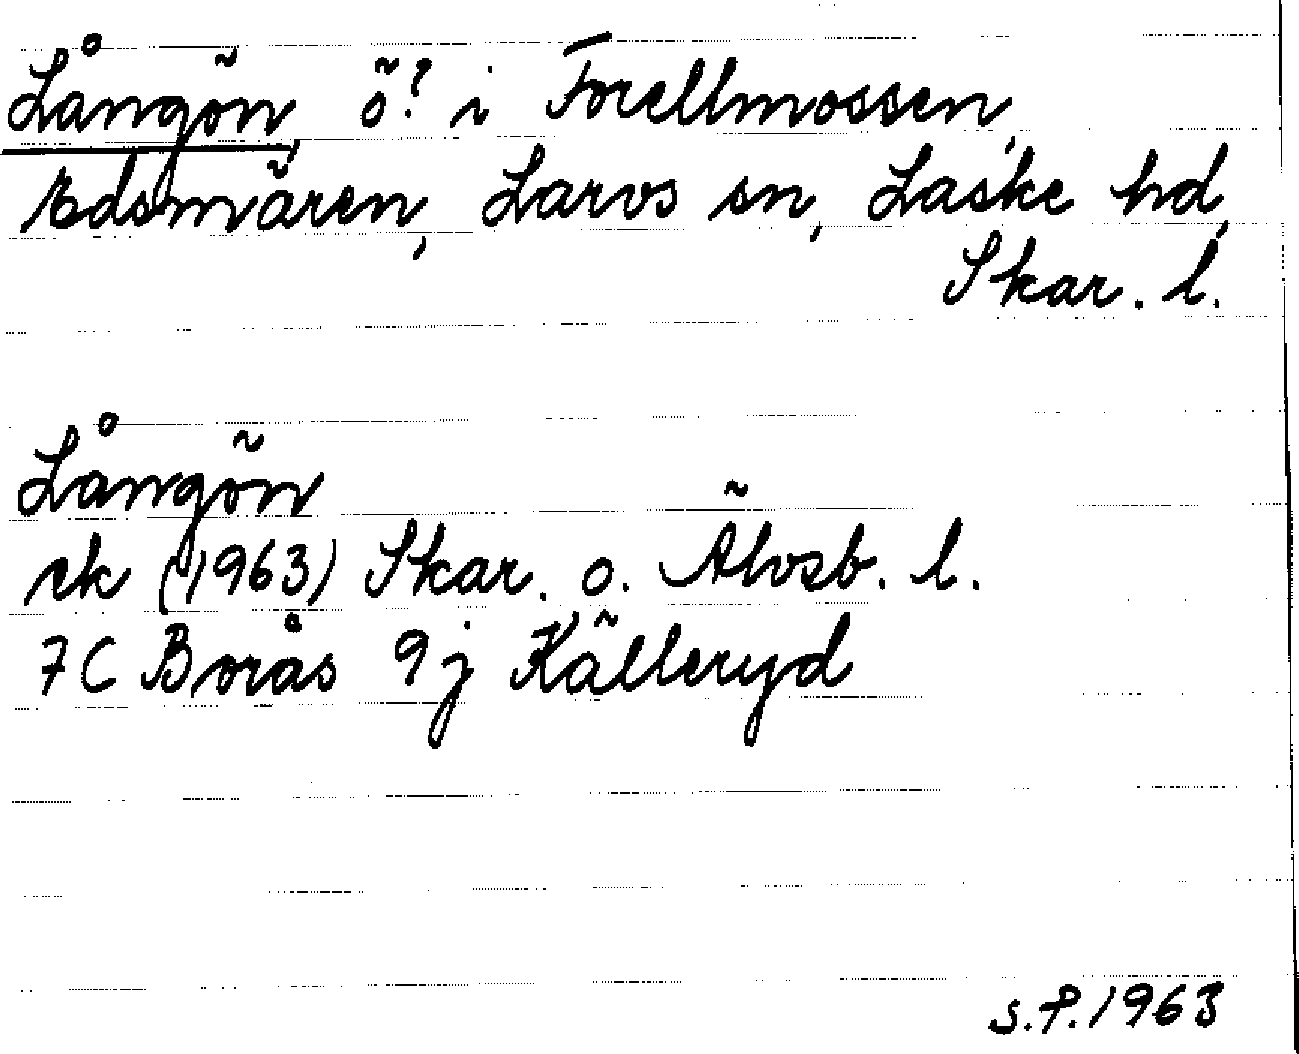 Långön, ö? i Forellmossen,
Edsmären, Larvs sn, Laske hd,
Skar. l.
Långön
ek (1963) Skar. o. Älvsb. l.
7C Borås 9j Källeryd
S.P. 1963